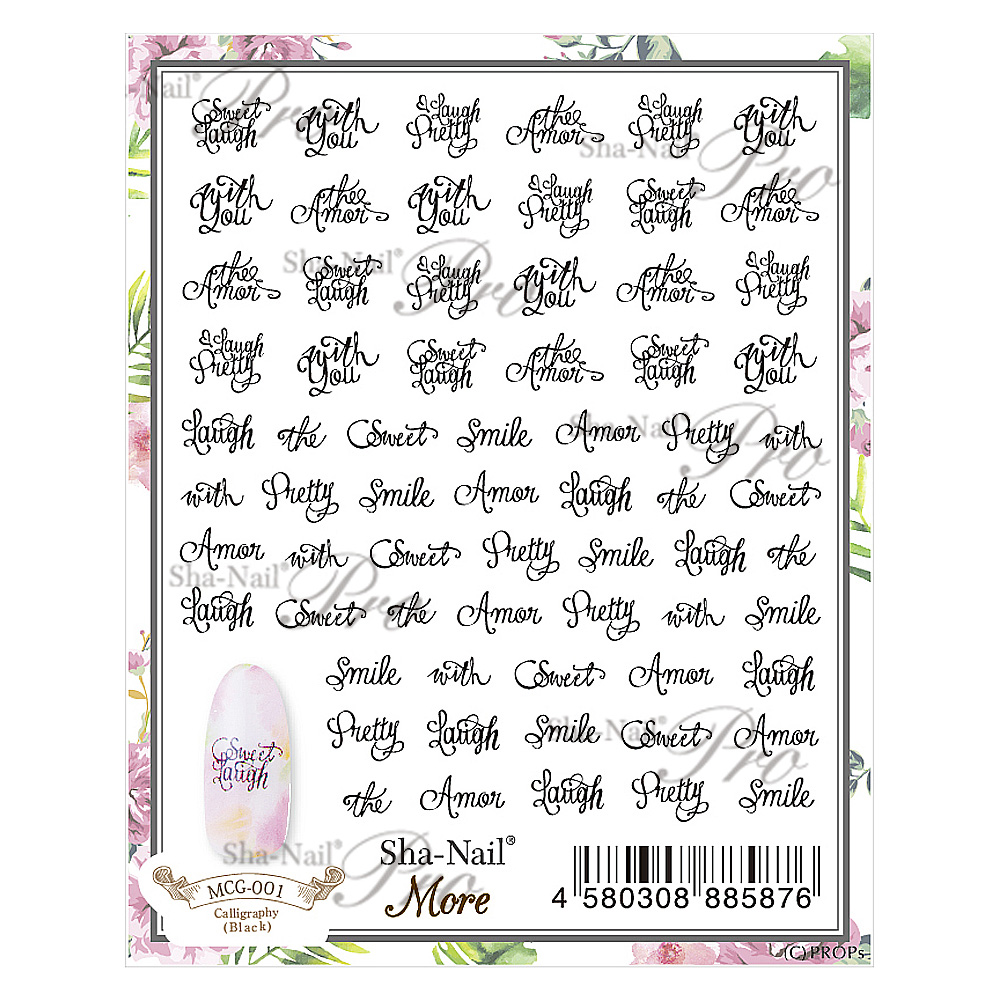 Sweet Laugh with You Laugh Pretty thee Amor Laugh Pretty with You
with You thee Amor with You Laugh Pretty Sweet Laugh thee Amor
thee Amor Sweet Laugh Laugh Pretty with You thee Amor Laugh Pretty
Laugh Pretty with You Sweet Laugh thee Amor Sweet Laugh with You
Laugh the Sweet Smile Amor Pretty with
with Pretty Smile Amor Laugh the Sweet
Amor with Sweet Pretty Smile Laugh the
Laugh Sweet the Amor Pretty with Smile
Smile with Sweet Amor Laugh
Pretty Laugh Smile Sweet Amor
the Amor Laugh Pretty Smile
Sweet
Laugh
Sha-Nail® Pro
Sha-Nail Pro
Sha-Nail® Pro
Pro
Sha-Nail® Pro
Sha-Nail® Pro
Sha-Nail® Pro
Sha-Nail® Pro
Sha-Nail®
More
MCG-001
Calligraphy
(Black)
4 580308 885876
(C)PROPs